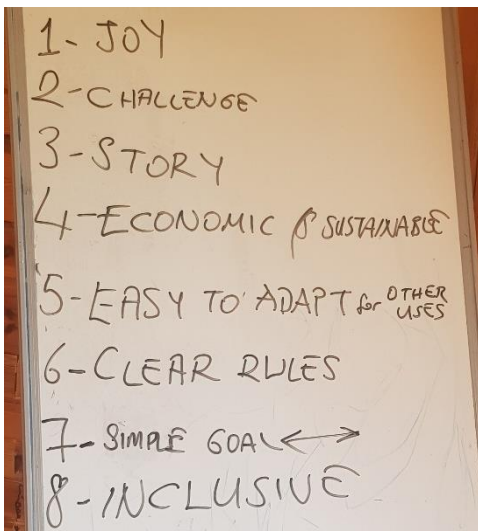 1- JOY
2- CHALLENGE
3- STORY
4- ECONOMIC & SUSTAINABLE
5- EASY TO ADAPT for OTHER USES
6- CLEAR RULES
7- SIMPLE GOAL ↔
8- INCLUSIVE